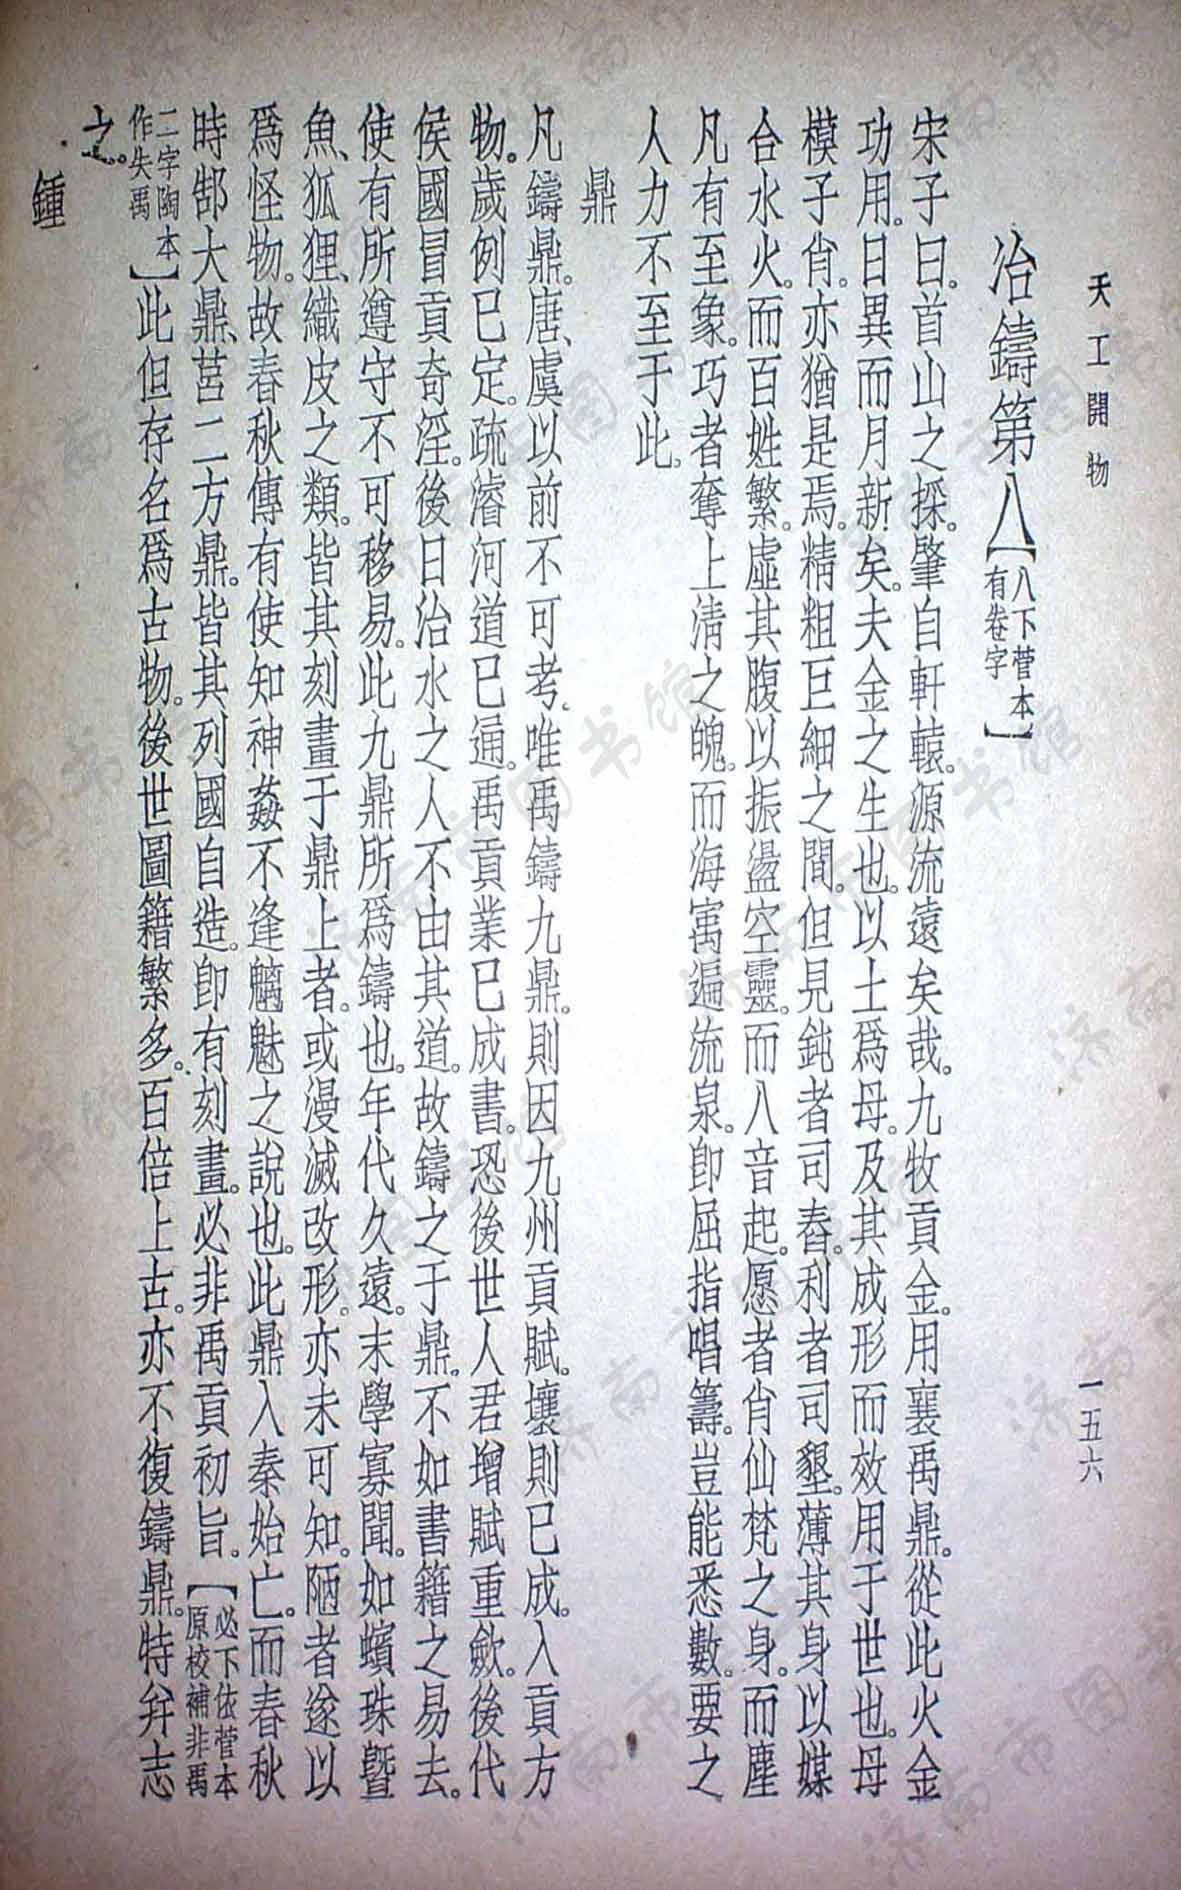 天工開物
一五六
冶鑄第八【八下菅本有卷字】
宋子曰。首山之採。肇自軒轅。源流遠矣哉。九牧貢金。用襄禹鼎。從此火金
功用。日異而月新矣。夫金之生也。以土爲母。及其成形而效用于世也。母
模子肖。亦猶是焉。精粗巨細之間。但見鈍者司舂。利者司墾。薄其身以媒
合水火。而百姓繁。虛其腹以振盪空靈。而八音起。愿者肖仙梵之身。而塵
凡有至象。巧者奪上清之魄。而海寓遍流泉。卽屈指唱籌。豈能悉數。要之
人力不至于此。
鼎
凡鑄鼎。唐、虞以前不可考。唯禹鑄九鼎。則因九州貢賦。壤則已成。入貢方
物。歲例已定。疏濬河道已通。禹貢業已成書。恐後世人君增賦重斂。後代
侯國冒貢奇淫。後日治水之人不由其道。故鑄之于鼎。不如書籍之易去。
使有所遵守不可移易。此九鼎所爲鑄也。年代久遠。末學寡聞。如蠙珠曁
魚、狐狸、織皮之類。皆其刻畫于鼎上者。或漫滅改形。亦未可知。陋者遂以
爲怪物。故春秋傳有使知神姦不逢魑魅之說也。此鼎入秦始亡。而春秋
時郜大鼎、莒二方鼎。皆其列國自造。卽有刻畫。必非禹貢初旨。【必下依菅本原校補非禹
二字陶本作失禹】此但存名爲古物。後世圖籍繁多。百倍上古。亦不復鑄鼎。特幷志
之。
鍾
济南市图书馆